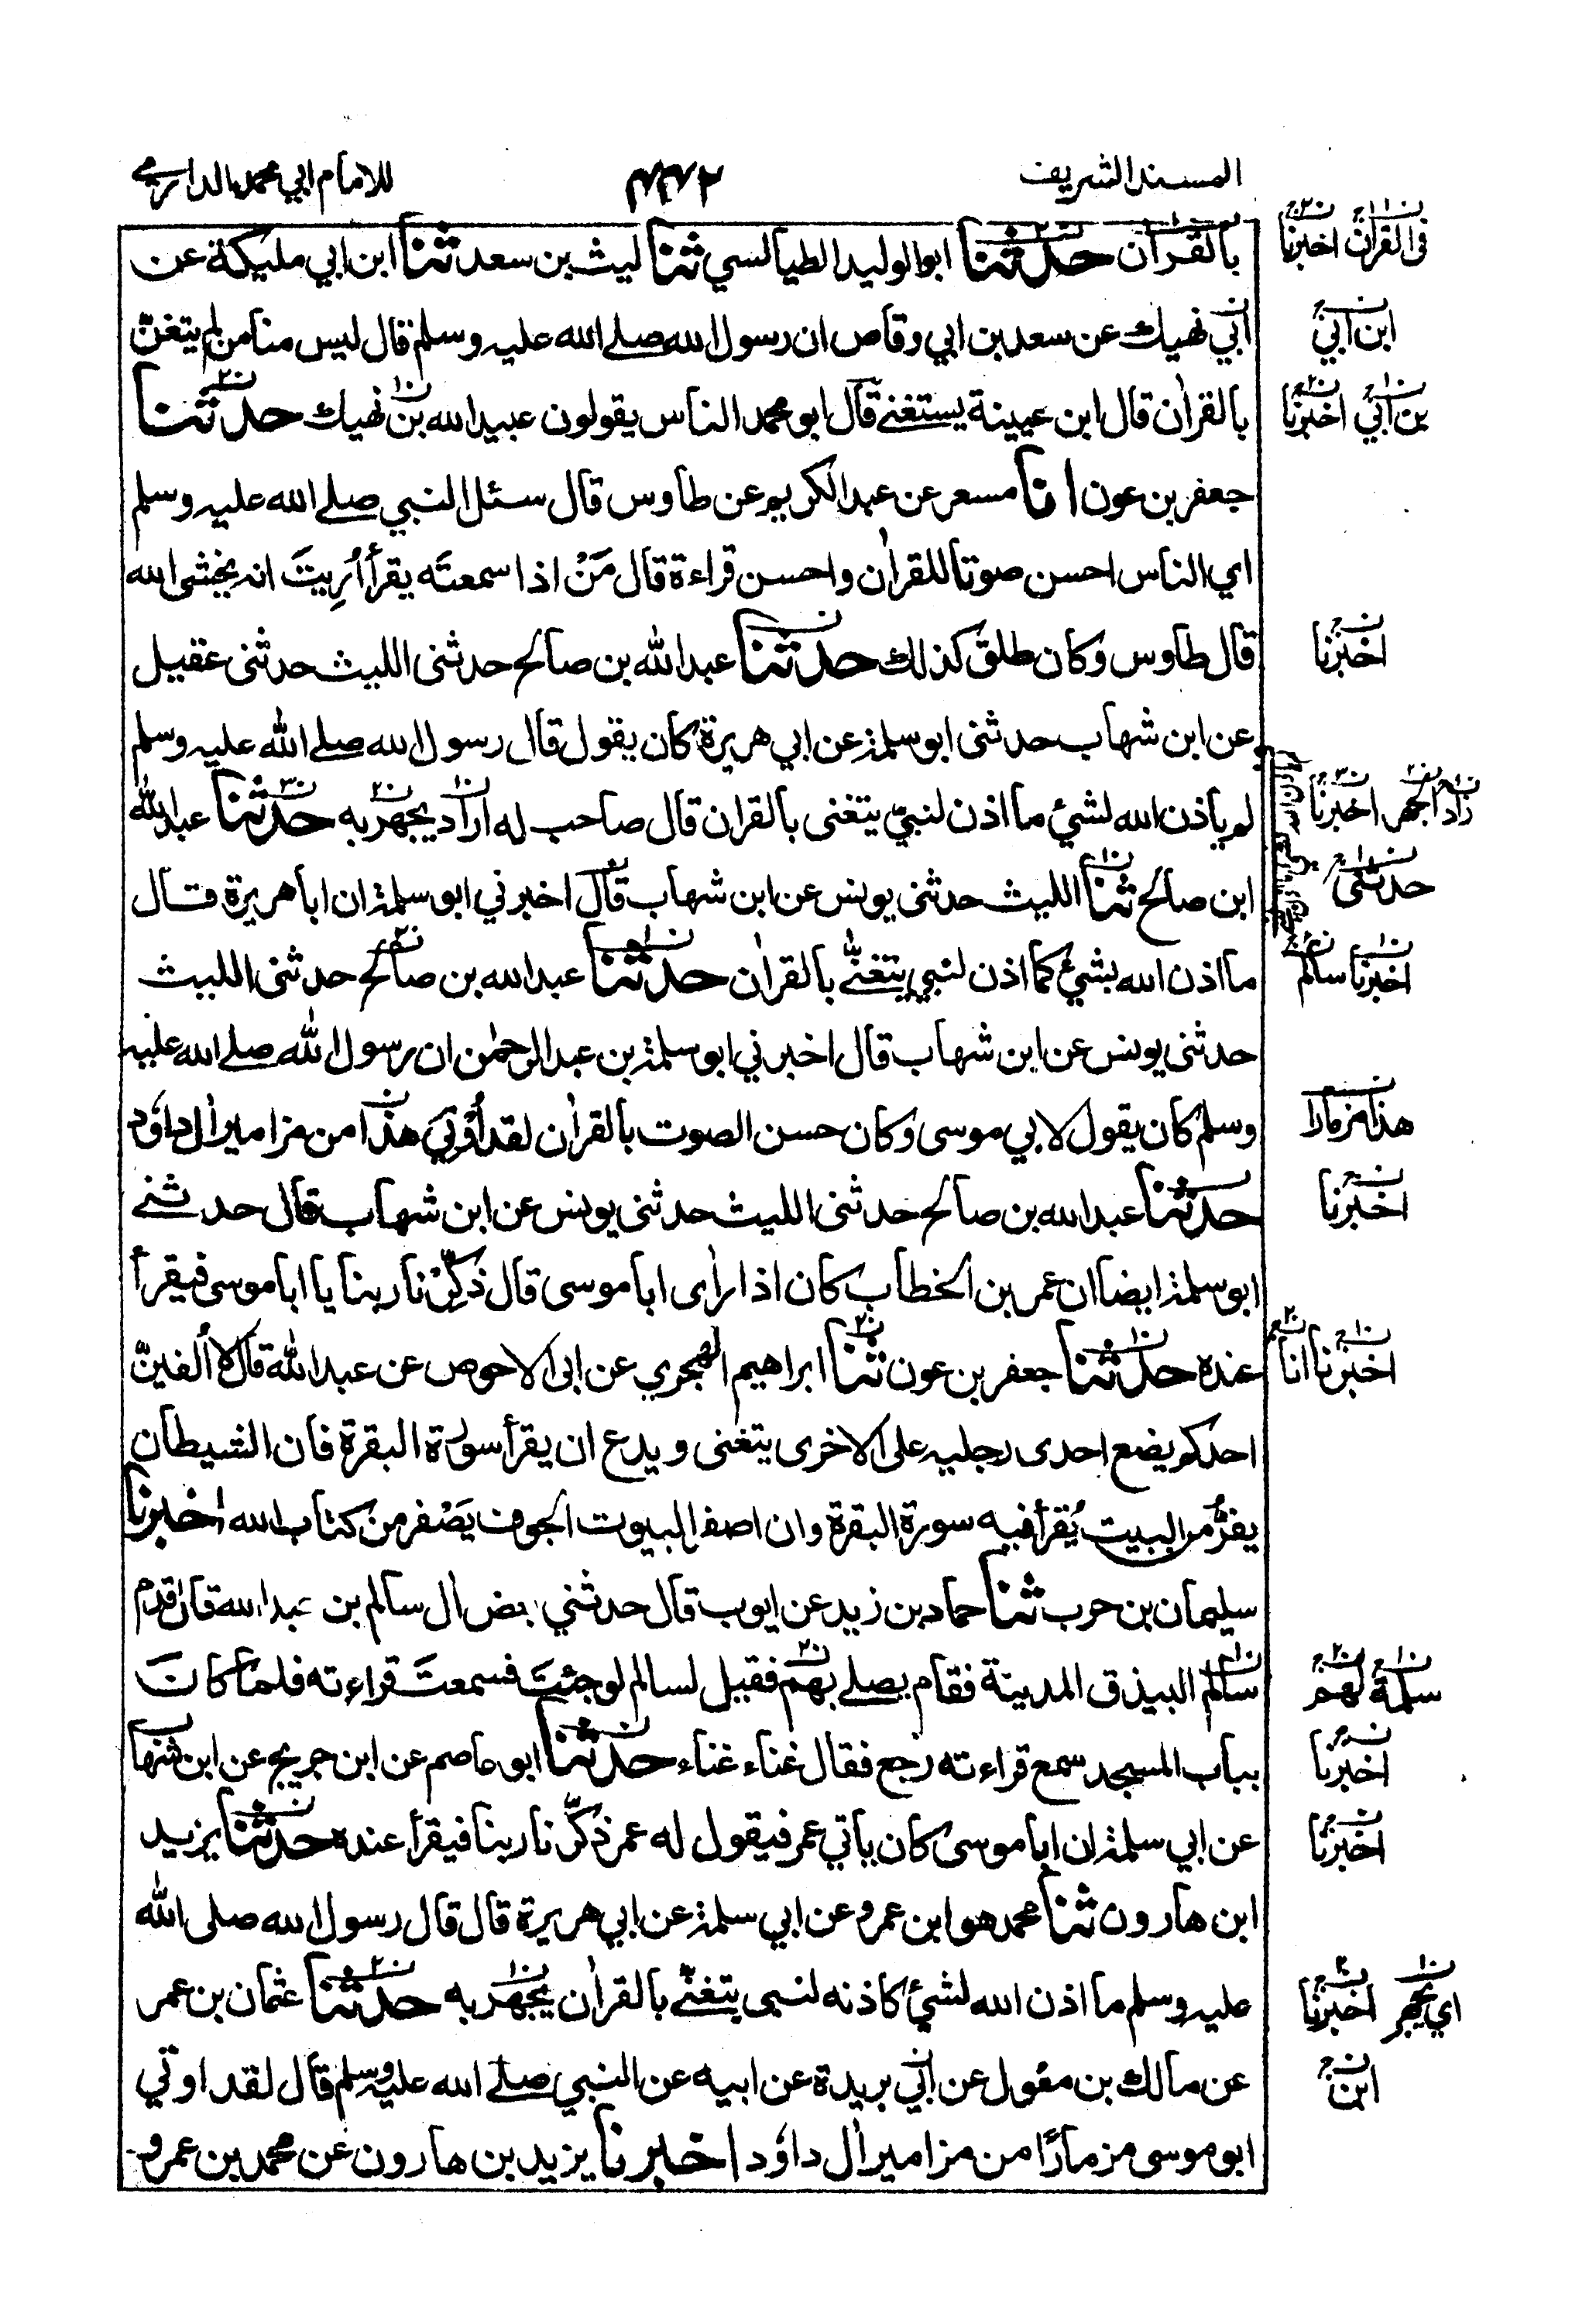 المسند الشريف ٤٤٢ للامام ابي محمد الدارمي
بالقرآن حدثنا ابو الوليد الطيالسي ثنا ليث بن سعد ثنا ابن ابي مليكة عن
ابي نهيك عن سعد بن ابي وقاص ان رسول الله صلے الله عليه وسلم قال ليس منا من لم يتغن
بالقراٰن قال ابن عيينة يستغنے قال ابو محمد الناس يقولون عبيد الله بن نهيك حدثنا
جعفر بن عون انا مسعر عن عبد الكريم عن طاوس قال سئل النبي صلے الله عليه وسلم
اي الناس احسن صوتا للقراٰن واحسن قراءة قال مَنْ اذا سمعتَه يقرأ اُرِيتَ انه يخشى الله
قال طاوس وكان طلق كذلك حدثنا عبد الله بن صالح حدثنى الليث حدثنى عقيل
عن ابن شهاب حدثنى ابو سلمة عن ابي هريرة كان يقول قال رسول الله صلے الله عليه وسلم
لم يأذن الله لشئ ما اذن لنبيّ يتغنى بالقران قال صاحب له اراد يجهر به حدثنا عبد الله
ابن صالح ثنا الليث حدثنى يونس عن ابن شهاب قال اخبرني ابو سلمة ان ابا هريرة قال
ما اذن الله بشئ كما اذن لنبي يتغنّے بالقراٰن حدثنا عبد الله بن صالح حدثنى الليث
حدثنى يونس عن ابن شهاب قال اخبرني ابو سلمة بن عبد الرحمٰن ان رسول الله صلے الله عليه
وسلم كان يقول لابي موسى وكان حسن الصوت بالقراٰن لقد اُوْتِيَ هذا من مزامير اٰل داوٗد
حدثنا عبد الله بن صالح حدثنى الليث حدثنى يونس عن ابن شهاب قال حدثنے
ابو سلمة ايضا ان عمر بن الخطاب كان اذا رأى ابا موسى قال ذَكِّرْنا ربنا يا ابا موسى فيقرأ
عنده حدثنا جعفر بن عون ثنا ابراهيم الهجري عن ابى الاحوص عن عبد الله قال لا اُلفينّ
احدكم يضع احدى رجليه على الاخرى يتغنى ويدع ان يقرأ سورة البقرة فان الشيطان
يفرُّ من البيت يُقرأ فيه سورة البقرة وان اصفر البيوت الجوف يَصْفر من كتاب الله اخبرنا
سليمان بن حرب ثنا حماد بن زيد عن ايوب قال حدثني بعض اٰل سالم بن عبد الله قال قدم
سالم البيذق المدينة فقام يصلے بهم فقيل لسالم لو جئتَ فسمعتَ قراءته فلما كان
بباب المسجد سمع قراءته رجع فقال غناء غناء حدثنا ابو عاصم عن ابن جريج عن ابن شهاب
عن ابي سلمة ان ابا موسى كان ياتي عمر فيقول له عمر ذكّرنا ربنا فيقرأ عنده حدثنا يزيد
ابن هارون ثنا محمد هو ابن عمرو عن ابي سلمة عن ابي هريرة قال قال رسول الله صلى الله
عليه وسلم ما اذن الله لشئ كاذنه لنبى يتغنّے بالقراٰن يجهر به حدثنا عثمان بن عمر
عن مالك بن مغول عن ابي بريدة عن ابيه عن النبي صلے الله عليه وسلم قال لقد اوتي
ابو موسى مزمارًا من مزامير اٰل داوٗد اخبرنا يزيد بن هارون عن محمد بن عمرو
فى القراٰن اخبرنا
ابن ابي
بن ابي اخبرنا
اخبرنا
زاد الجهر اخبرنا
حدثنى
اخبرنا سالم
هذا مزمارا
اخبرنا
اخبرنا انا
سلمة لهم
اخبرنا
اخبرنا
اي يجهر اخبرنا
ابن